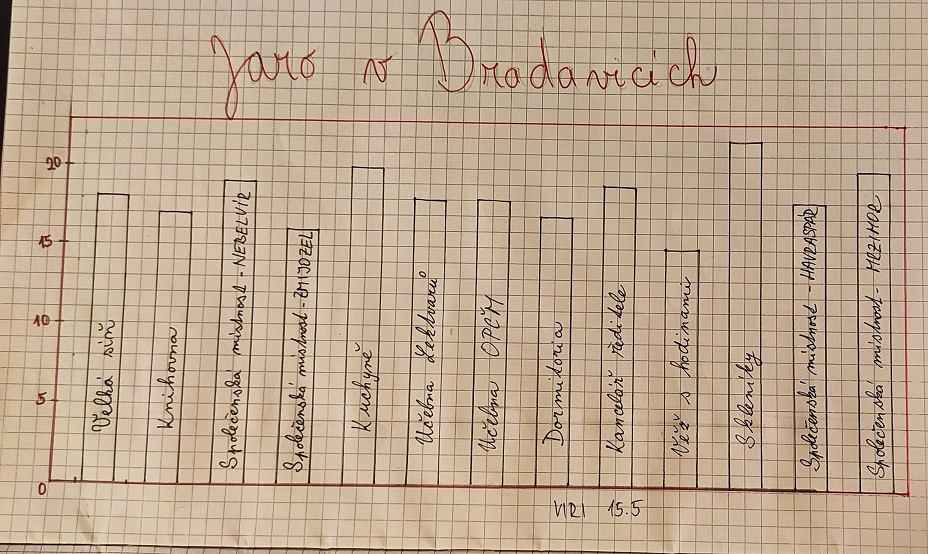 Jaro v Bradavicích
20
15
10
5
0
Velká síň
Knihovna
Společenská místnost - NEBELVÍR
Společenská místnost - ZMIJOZEL
Kuchyně
Učebna Lektvarů
Učebna OPČM
Dormitoria
Kancelář ředitele
Věž s hodinami
Skleníky
Společenská místnost - HAVRASPÁR
Společenská místnost - MRZIMOR
VIRI 15.5